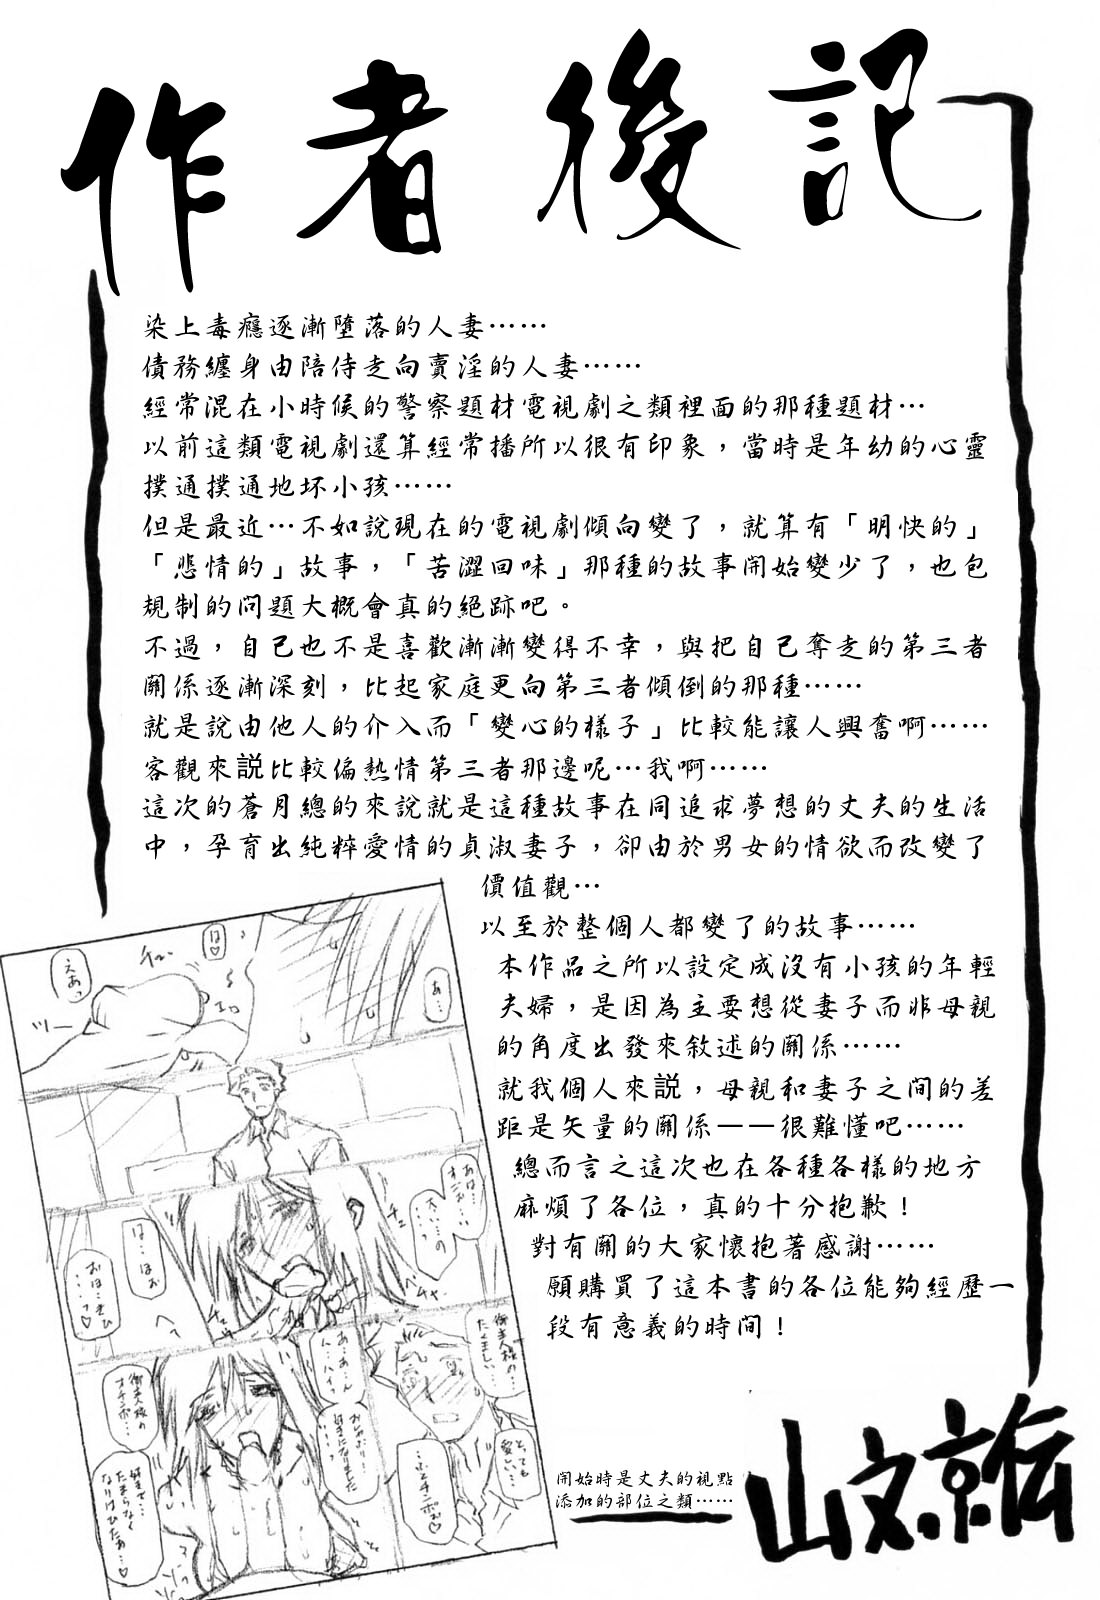 作者後記
染上毒癮逐漸墮落的人妻……
債務纏身由陪侍走向賣淫的人妻……
經常混在小時候的警察題材電視劇之類裡面的那種題材…
以前這類電視劇還算經常播所以很有印象，當時是年幼的心靈
撲通撲通地坏小孩……
但是最近…不如說現在的電視劇傾向變了，就算有「明快的」
「悲情的」故事，「苦澀回味」那種的故事開始變少了，也包
規制的问題大概會真的絕跡吧。
不過，自己也不是喜歡漸漸變得不幸，與把自己奪走的第三者
關係逐漸深刻，比起家庭更向第三者傾倒的那種……
就是說由他人的介入而「變心的樣子」比較能讓人興奮啊……
客觀來説比較偏熱情第三者那邊呢…我啊……
這次的蒼月總的來說就是這種故事在同追求夢想的丈夫的生活
中，孕育出純粹愛情的貞淑妻子，卻由於男女的情欲而改變了
價值觀…
以至於整個人都變了的故事……
本作品之所以設定成沒有小孩的年輕
夫婦，是因為主要想從妻子而非母親
的角度出發來敘述的關係……
就我個人來説，母親和妻子之间的差
距是矢量的關係——很難懂吧……
總而言之這次也在各種各樣的地方
麻煩了各位，真的十分抱歉！
對有關的大家懷抱著感謝……
願購買了這本書的各位能夠經歷一
段有意義的時间！
開始時是丈夫的視點
添加的部位之類……
山文京伝